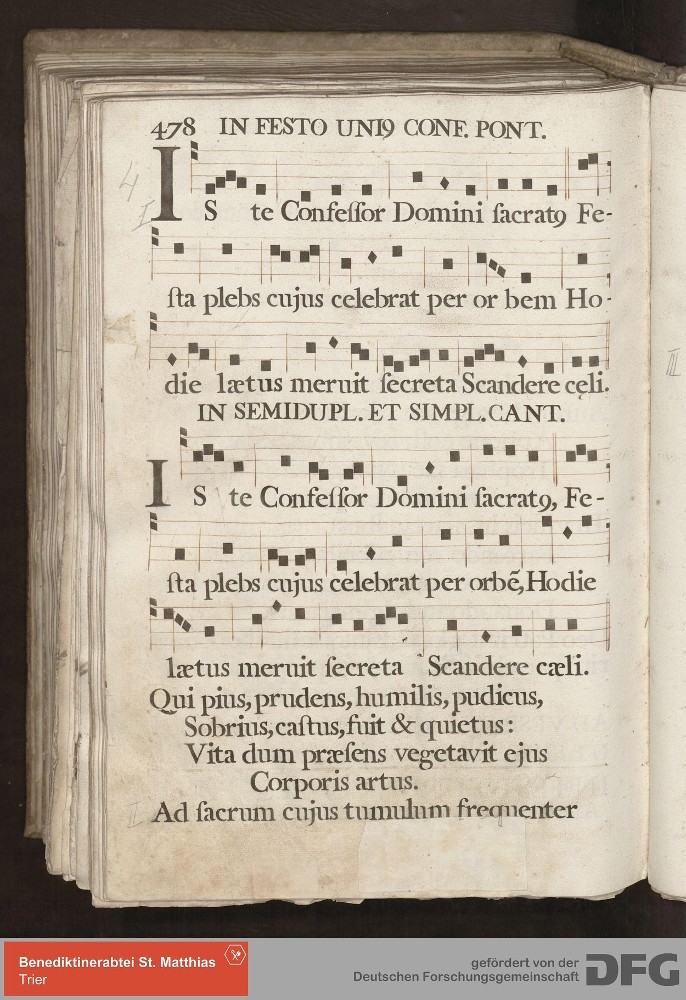 478 IN FESTO UNI9 CONF. PONT.
IS te Confeſſor Domini ſacrat9 Fe-
ſta plebs cujus celebrat per or bem Ho-
die lætus meruit ſecreta Scandere cęli.
IN SEMIDUPL. ET SIMPL. CANT.
IS te Confeſſor Domini ſacrat9, Fe-
ſta plebs cujus celebrat per orbē, Hodie
lætus meruit ſecreta Scandere cæli.
Qui pius, prudens, humilis, pudicus,
Sobrius, caſtus, fuit & quietus:
Vita dum præſens vegetavit ejus
Corporis artus.
Ad ſacrum cujus tumulum frequenter
Benediktinerabtei St. Matthias
Trier
gefördert von der
Deutschen Forschungsgemeinschaft
DFG